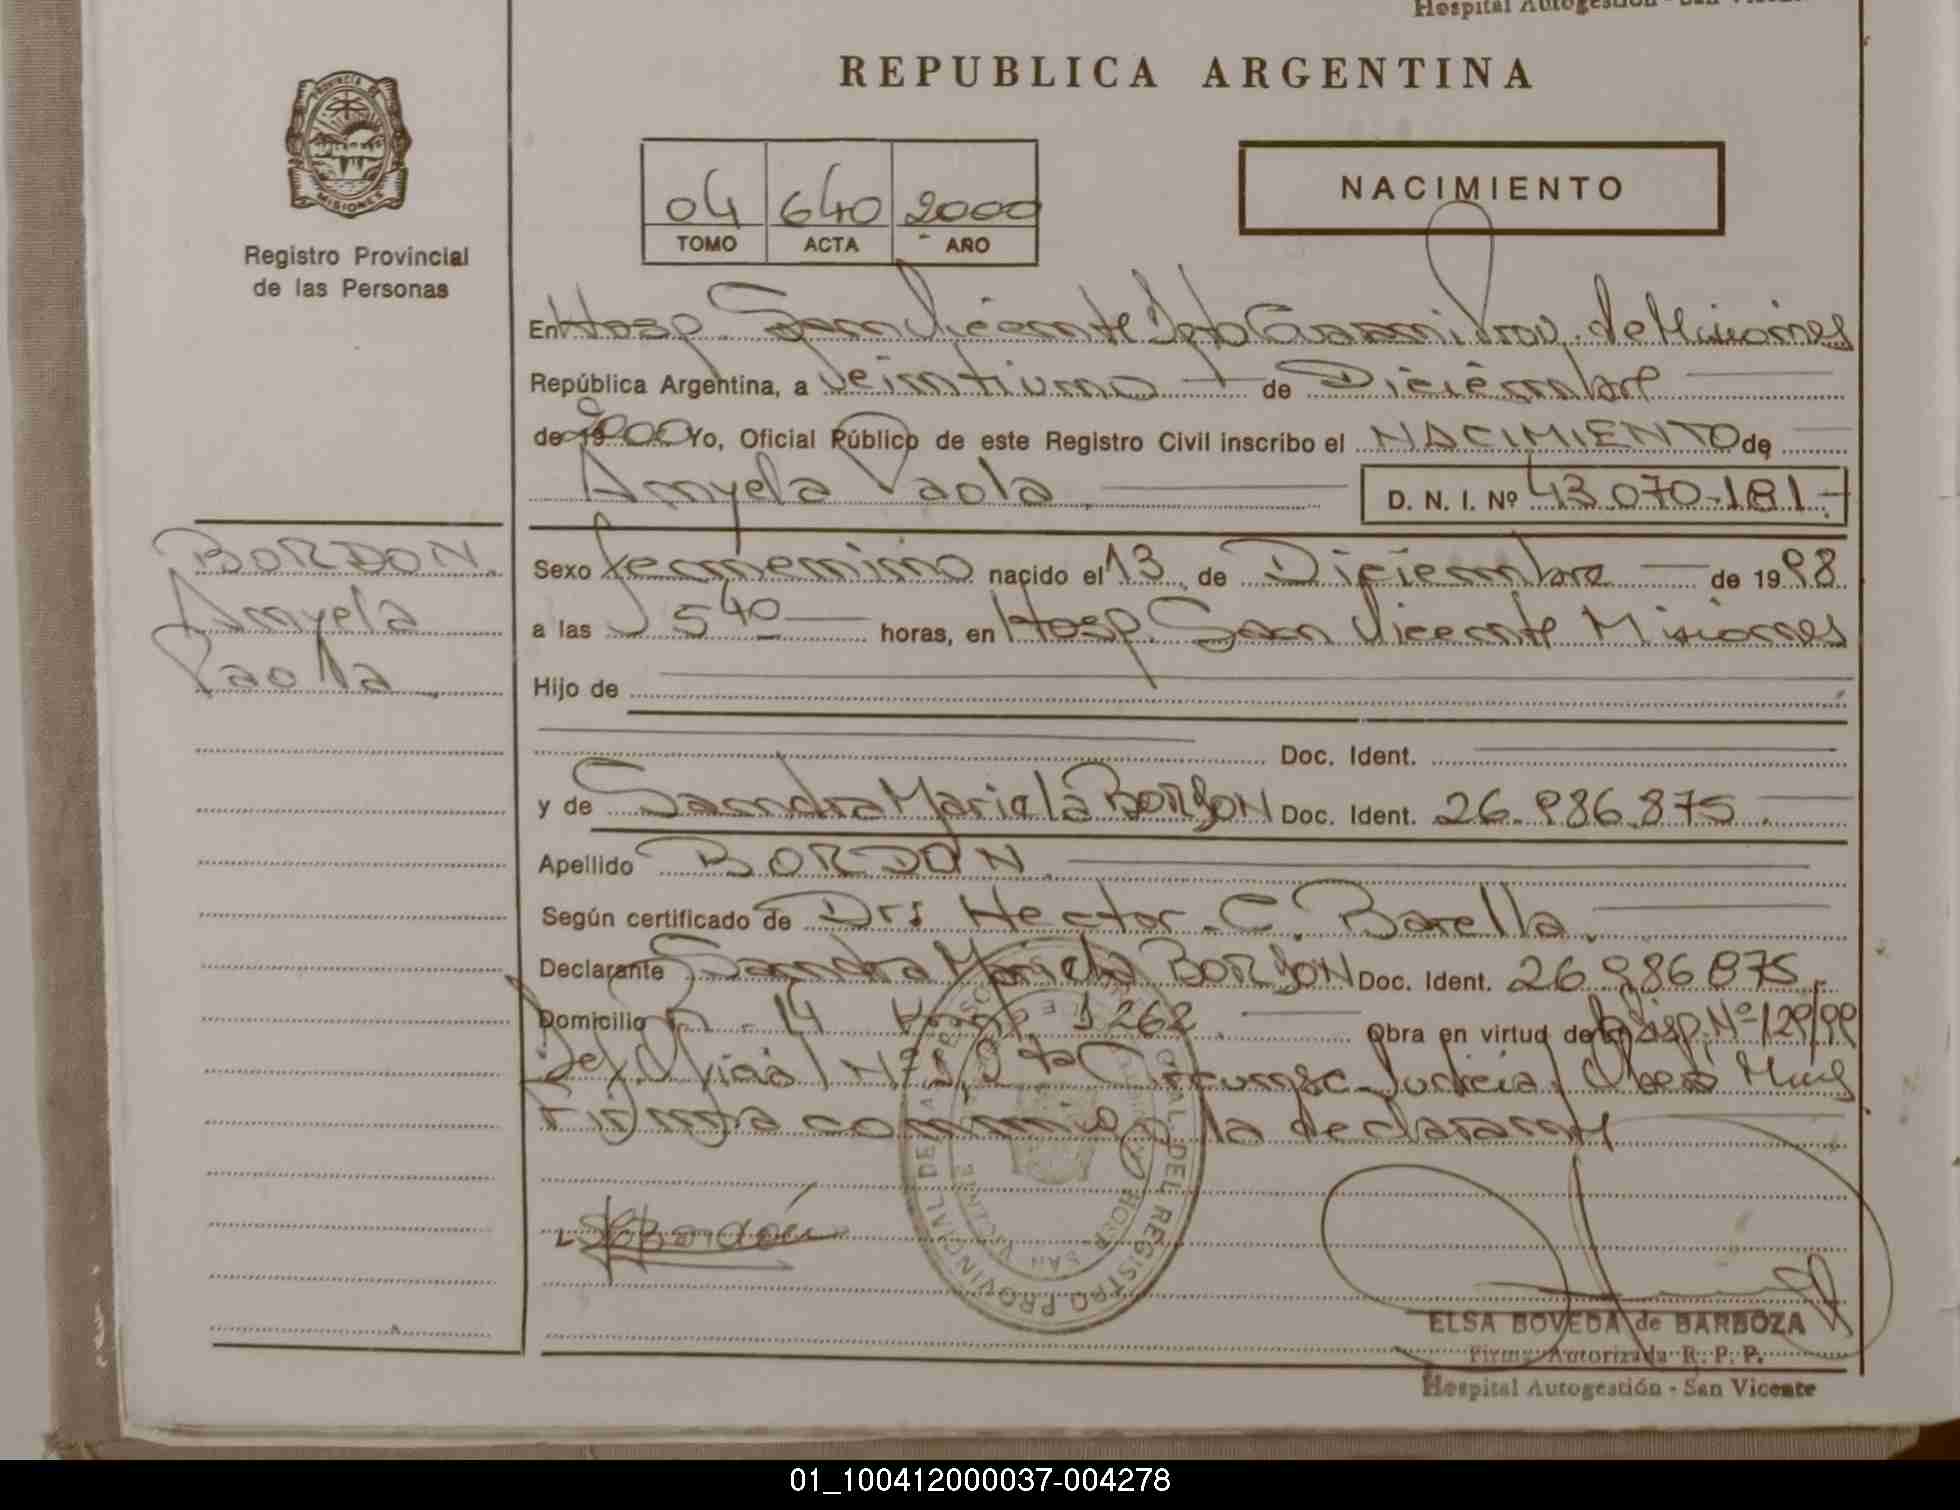 Hospital Autogestión - San Vicente
REPUBLICA ARGENTINA
PROVINCIA DE MISIONES
Registro Provincial
de las Personas
04 640 2000
TOMO ACTA AÑO
NACIMIENTO
En Hosp. San Vicente Dpto Guarani Prov. de Misiones
República Argentina, a Veintiuno de Diciembre
de 19 2000 Yo, Oficial Público de este Registro Civil inscribo el NACIMIENTO de
Angela Paola
D. N. I. Nº 43.070.181
BORDON
Angela
Paola
Sexo femenino nacido el 13 de Diciembre de 1998
a las 5 40 horas, en Hosp. San Vicente Misiones
Hijo de
Doc. Ident.
y de Sandra Mariela BORDON Doc. Ident. 26.986.875
Apellido BORDON
Según certificado de Dr. Hector C. Barella
Declarante Sandra Mariela BORDON Doc. Ident. 26.986.875
Domicilio 14 1262 Obra en virtud de Disp. Nº 129/99
Judicial Oberá Mnes
Firma conmigo la declarante
Bordón
REGISTRO PROVINCIAL DE LAS
SAN VICENTE
ELSA BOVEDA de BARBOZA
Firma Autorizada R. P. P.
Hospital Autogestión - San Vicente
01_100412000037-004278